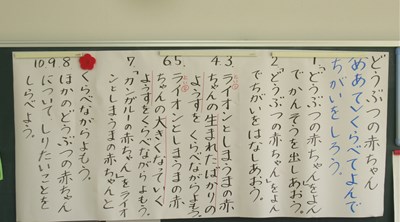 どうぶつの赤ちゃん
めあて くらべてよんで
ちがいをしろう。
1「どうぶつの赤ちゃん」をよん
でかんそうを出しあおう。
2「どうぶつの赤ちゃん」をよん
でちがいをはなしあおう。
4.3.ライオンとしまうまの赤
ちゃんの生まれたばかりの
ようすをくらべながらよもう。
6.5.ライオンとしまうまの赤
ちゃんの大きくなっていく
ようすをくらべながらよもう。
7「カンガルーの赤ちゃん」をライオ
ンとしまうまの赤ちゃんと
くらべながらよもう。
10.9.8 ほかのどうぶつの赤ちゃん
について、しりたいことを
しらべよう。